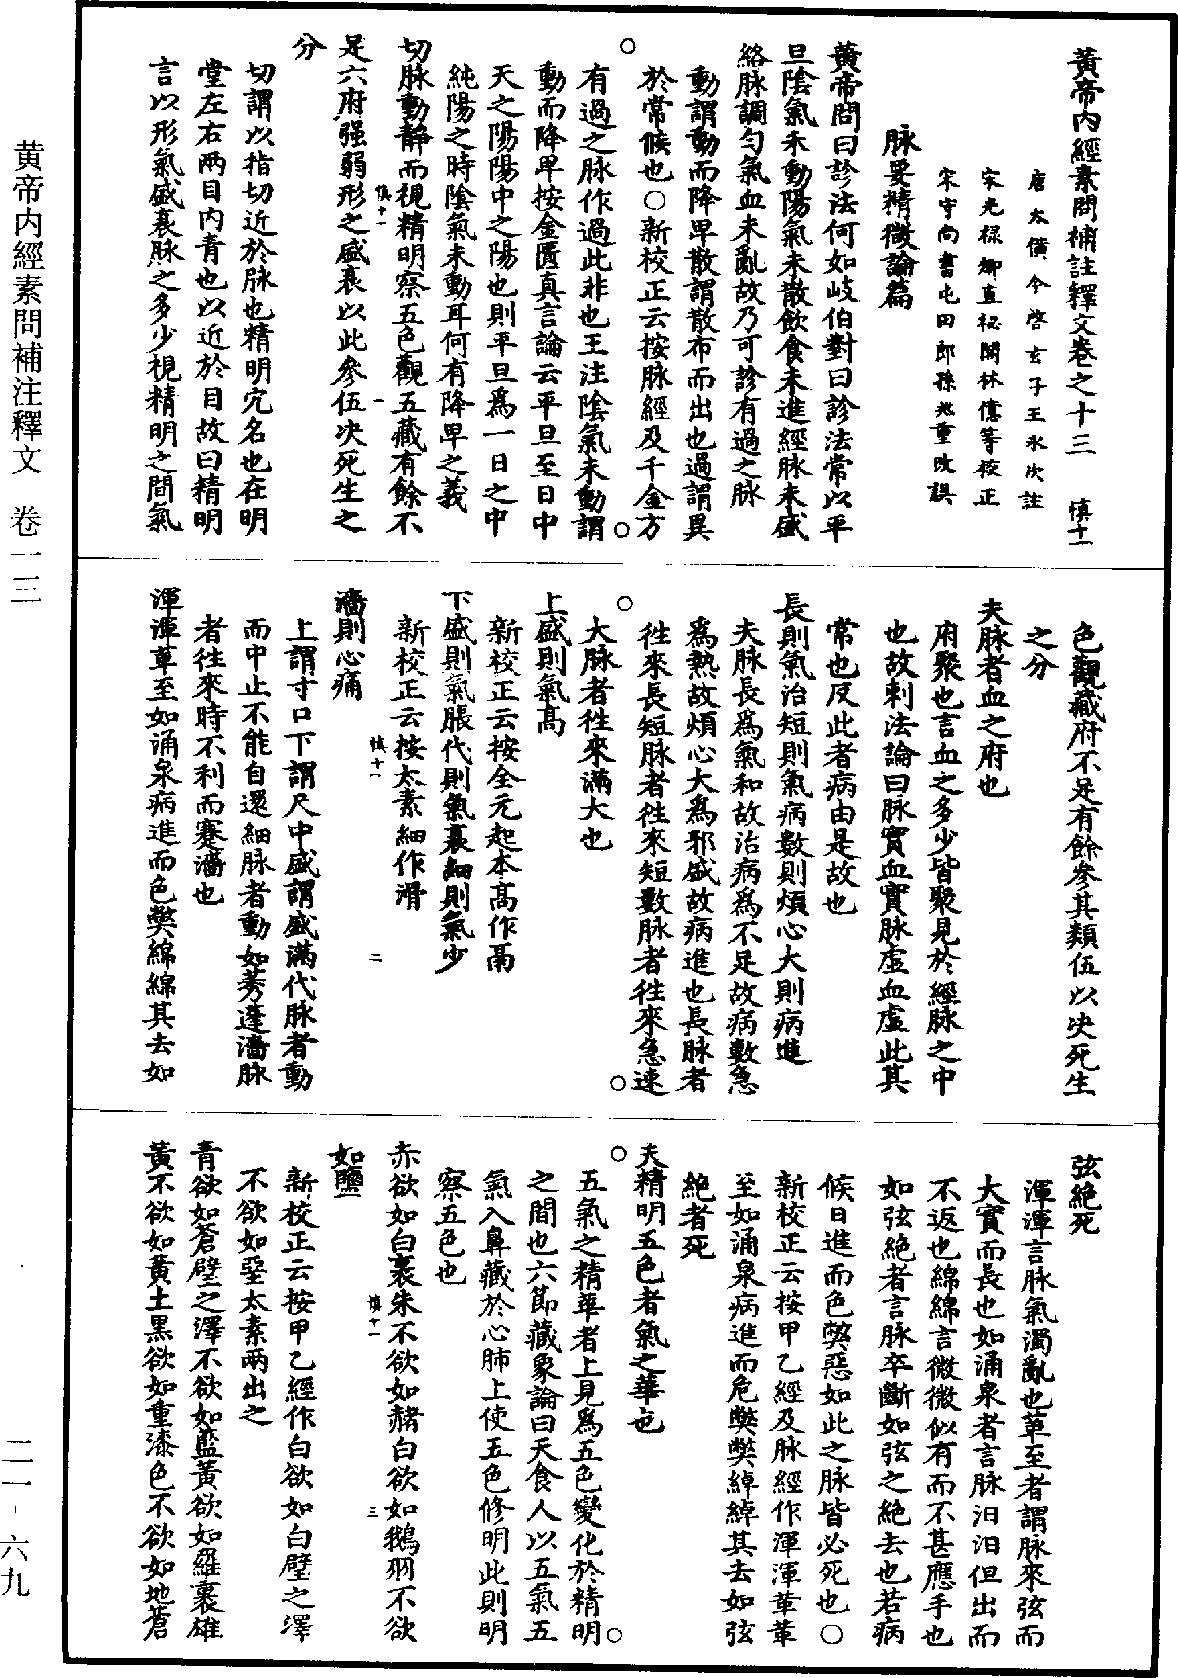 黃帝內經素問補註釋文卷之十三 慎十一
唐太僕令啓玄子王氷次註
宋光祿卿直秘閣林億等校正
宋守尚書屯田郎孫兆重改誤
脉要精微論篇
黃帝問曰診法何如岐伯對曰診法常以平
旦陰氣未動陽氣未散飲食未進經脉未盛
絡脉調勻氣血未亂故乃可診有過之脉
動謂動而降卑散謂散布而出也過謂異
於常候也○新校正云按脉經及千金方
有過之脉作過此非也王注陰氣未動謂
動而降卑按金匱真言論云平旦至日中
天之陽陽中之陽也則平旦爲一日之中
純陽之時陰氣未動耳何有降卑之義
切脉動靜而視精明察五色觀五藏有餘不
慎十一 一
足六府强弱形之盛衰以此參伍決死生之
分
切謂以指切近於脉也精明穴名也在明
堂左右兩目內眥也以近於目故曰精明
言以形氣盛衰脉之多少視精明之間氣
色觀藏府不足有餘參其類伍以決死生
之分
夫脉者血之府也
府聚也言血之多少皆聚見於經脉之中
也故刺法論曰脉實血實脉虛血虛此其
常也反此者病由是故也
長則氣治短則氣病數則煩心大則病進
夫脉長爲氣和故治病爲不足故病數急
爲熱故煩心大爲邪盛故病進也長脉者
徃來長短脉者徃來短數脉者徃來急速
大脉者徃來滿大也
上盛則氣高
新校正云按全元起本高作鬲
下盛則氣脹代則氣衰細則氣少
新校正云按太素細作滑
慎十一 二
濇則心痛
上謂寸口下謂尺中盛謂盛滿代脉者動
而中止不能自還細脉者動如莠蓬濇脉
者徃來時不利而蹇濇也
渾渾革至如涌泉病進而色弊綿綿其去如
弦絕死
渾渾言脉氣濁亂也革至者謂脉來弦而
大實而長也如涌泉者言脉汩汩但出而
不返也綿綿言微微似有而不甚應手也
如弦絕者言脉卒斷如弦之絕去也若病
候日進而色弊惡如此之脉皆必死也○
新校正云按甲乙經及脉經作渾渾革革
至如涌泉病進而危弊弊綽綽其去如弦
絕者死
夫精明五色者氣之華也
五氣之精華者上見爲五色變化於精明
之間也六節藏象論曰天食人以五氣五
氣入鼻藏於心肺上使五色修明此則明
察五色也
赤欲如白裹朱不欲如赭白欲如鵝羽不欲
慎十一 三
如鹽
新校正云按甲乙經作白欲如白璧之澤
不欲如堊太素兩出之
青欲如蒼璧之澤不欲如藍黃欲如羅裹雄
黃不欲如黃土黑欲如重漆色不欲如地蒼
黄帝内經素問補注釋文 卷一三
二一-六九